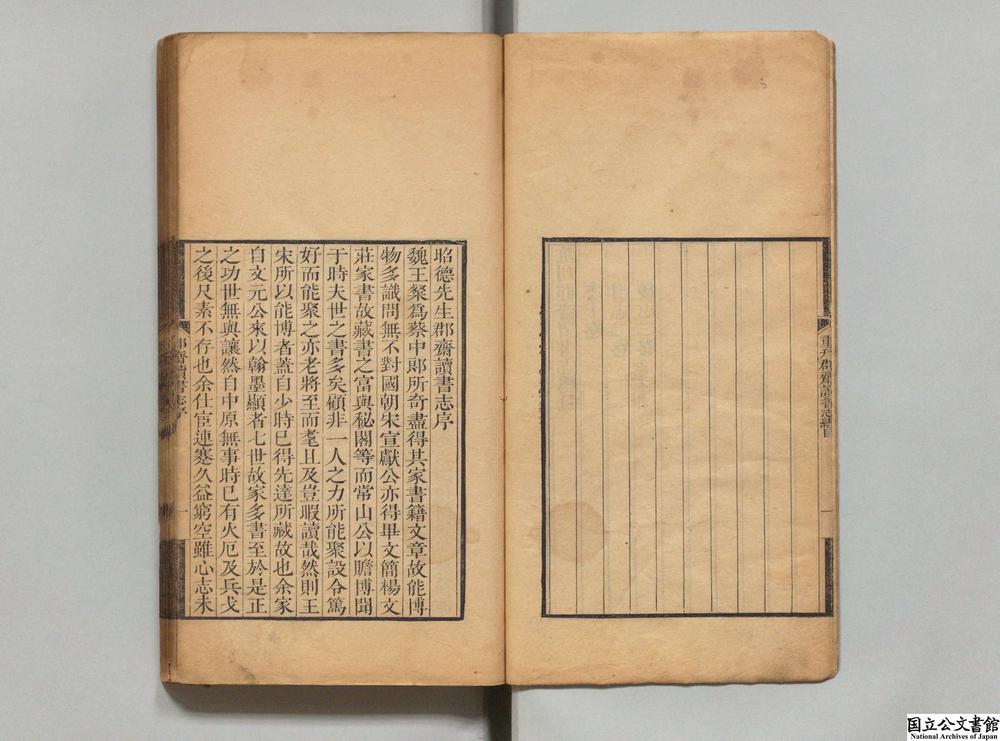 重刋郡齋讀書志總目
一
昭德先生郡齋讀書志序
魏王粲爲蔡中郎所奇盡得其家書籍文章故能博
物多識問無不對國朝宋宣獻公亦得畢文簡楊文
莊家書故藏書之富與秘閣等而常山公以贍博聞
于時夫世之書多矣顧非一人之力所能聚設令篤
好而能聚之亦老將至而耄且及豈暇讀哉然則王
宋所以能博者蓋自少時已得先達所藏故也余家
自文元公來以翰墨顯者七世故家多書至於是正
之功世無與讓然自中原無事時已有火厄及兵戈
之後尺素不存也余仕宦連蹇久益窮空雖心志未
郡齋讀書志序
一
国立公文書館
National Archives of Japan